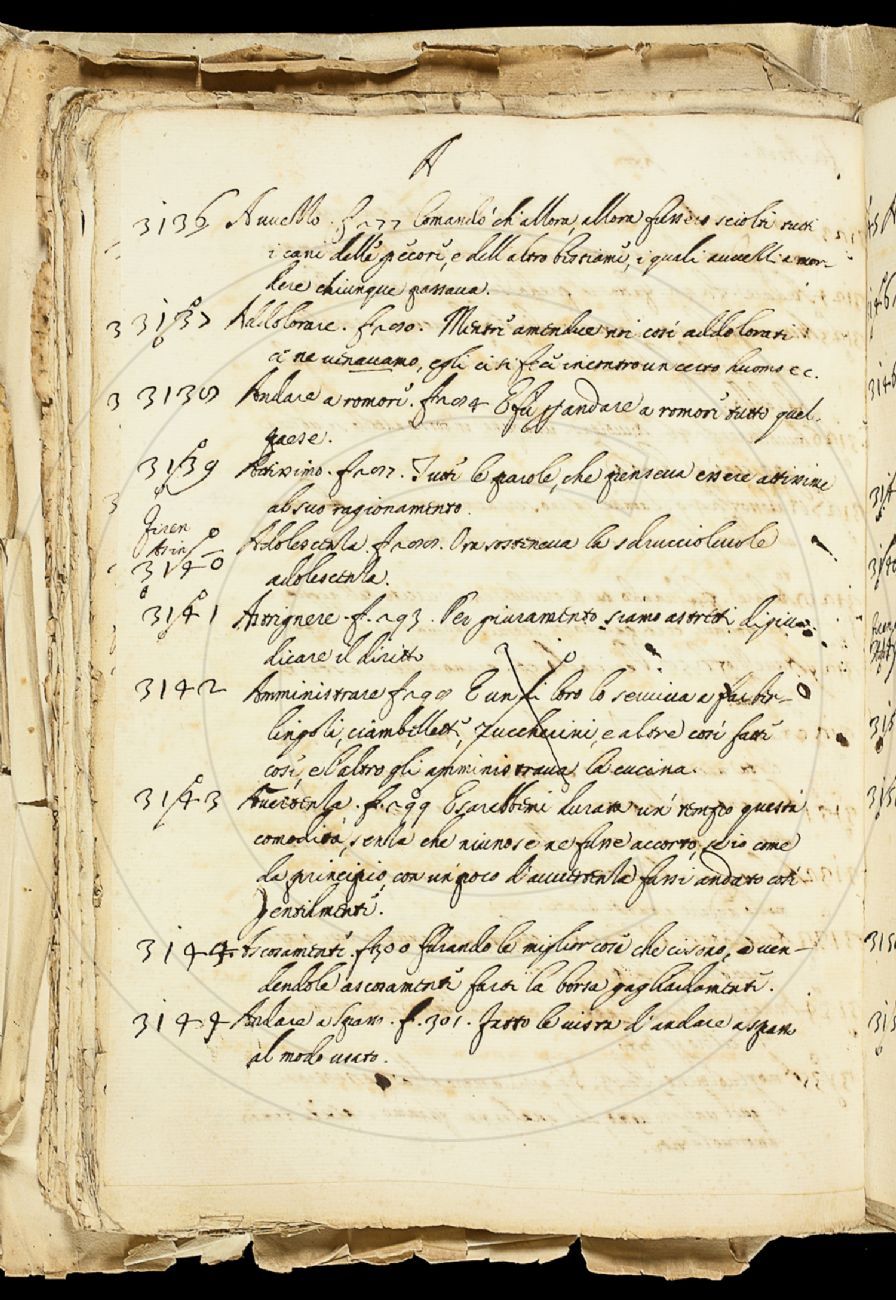 A
3136 Auuezzo. f. 277 Comandò ch'allora, allora fussero sciolti tutti
i cani delle pecore, e dell'altro bestiame, i quali auuezzi a mor-
dere chiunque passaua.
3137 Addolorare. f. Mentre amendue noi così addolorati
ce ne uenauamo, egli ci si fece incontro un certo huomo ec.
3138 Andare a romore. f. E fu andare a romore tutto quel
paese.
3139 Attissimo. f. Tutte le parole, che pensaua essere attissime
al suo ragionamento.
Firen
Asin
3140 Adolescenza. f. Ora sosteneua la sdruccioleuole
adolescenza.
3141 Astrignere. f. 293. Per giuramento siamo astretti di giu-
dicare il diritto
3142 Amministrare f. E un di loro lo seruiua a far ber-
lingozzi, ciambellette, zuccherini, e altre cose fatte
così, e l'altro gli amministraua la cucina.
3143 Auuertenza. f. 299 E sarebbemi durata un tempo questa
comodità, senza che niuno se ne fusse accorto, se io come
da principio, con un poco d'auuertenza fussi andato così
gentilmente.
3144 Ascosamente. f. 300 furando le miglior cose che ci sono, e uen-
dendole ascosamente farti la borsa gagliardamente.
3144 Andare a spasso. f. 301. Fatto le uista d'andare a spasso
al modo usato.